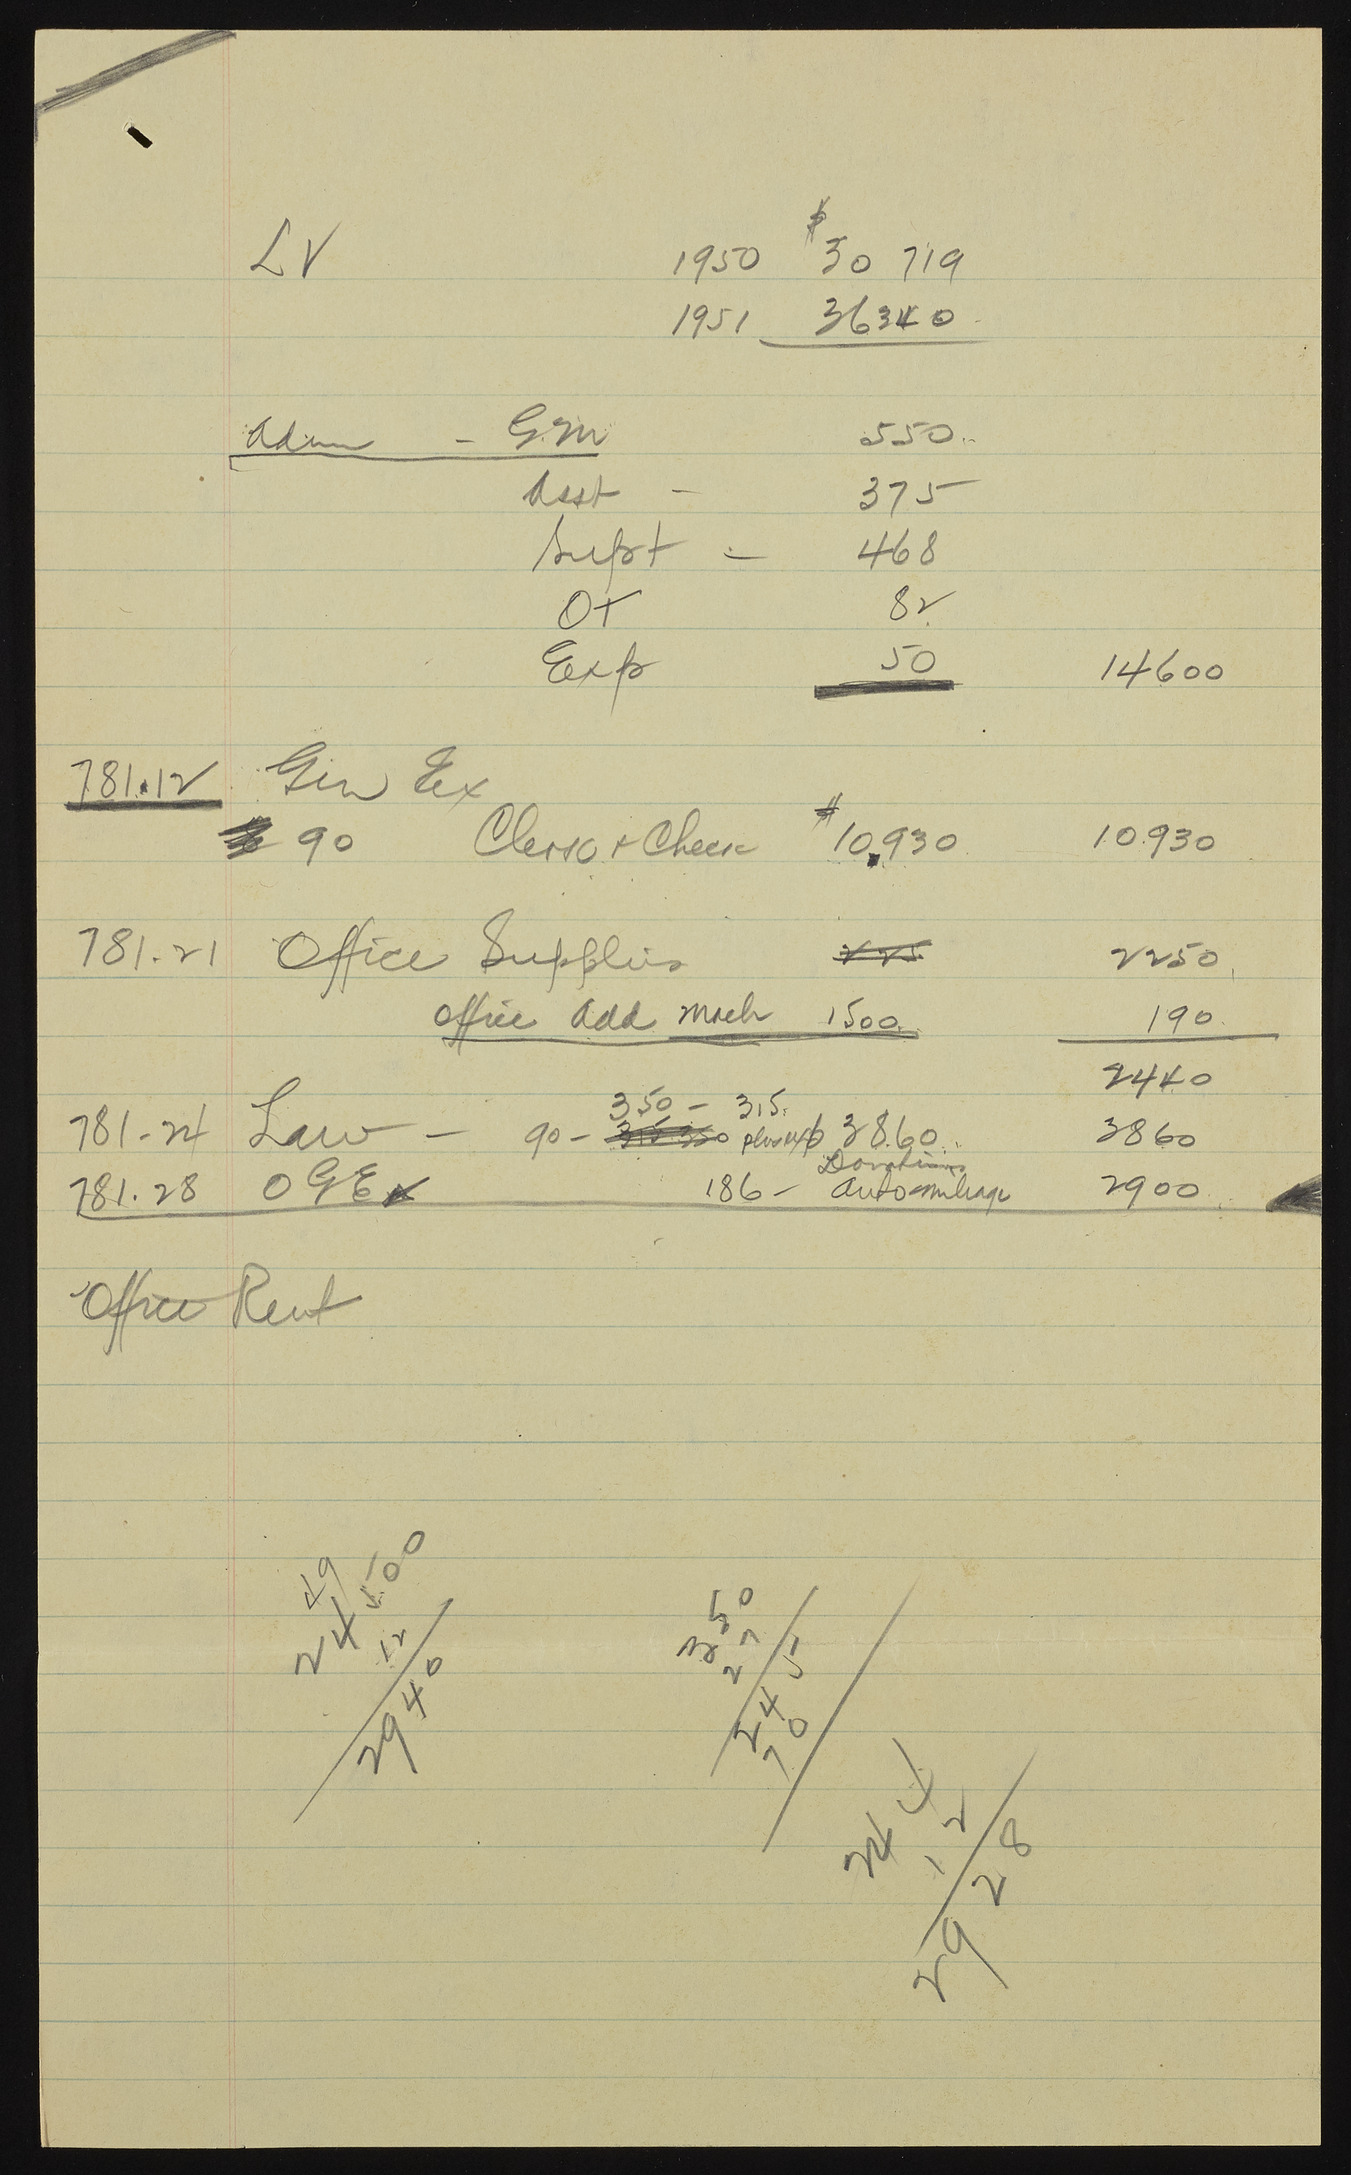 LV 1950 $30 719
1951 36340
Adm - G.M 550
Asst - 375
Supt - 468
OT 82
Exp 50 14600
781.12 Gen Ex
90 Clerk + Check $10,930 10.930
781.21 Office Supplies 225 2250
Office Add Mach 1500 190
2440
350 - 315
781-24 Law - 90 - 315 350 plus exp 3860 3860
Donations
781.28 O G Ex 186 - Auto mileage 2900
Office Rent
49
24 500
12
2940
350
27
245
70
244
12
2928